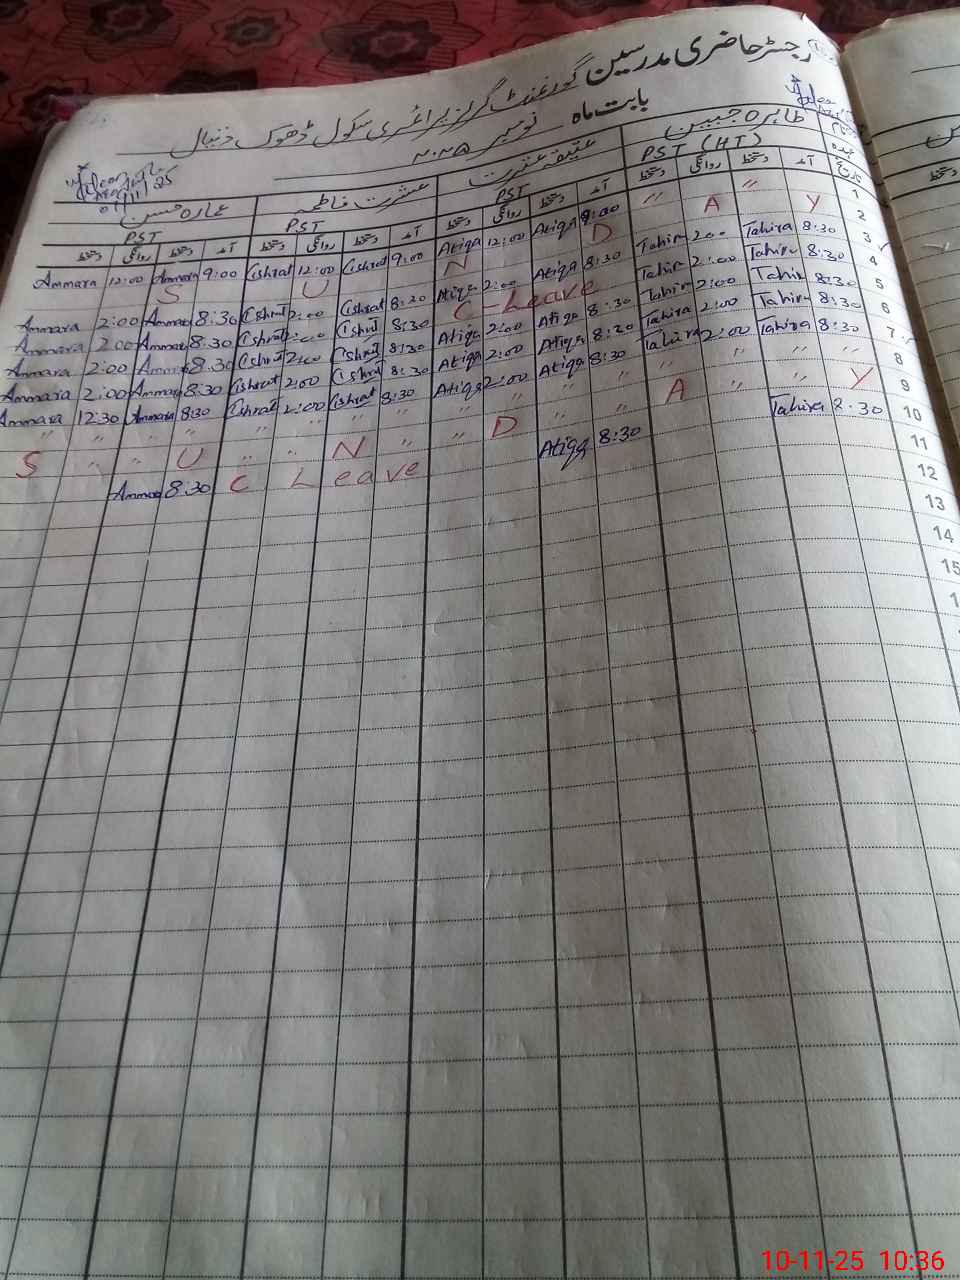 رجسٹر حاضری مدرسین گورنمنٹ گرلز پرائمری سکول ڈھوک دنیال
بابت ماہ نومبر ۲۰۲۵
طاہرہ جبیں عتیقہ عشرت عشرت فاطمہ عمارہ حسن
PST (HT) PST PST PST
تاریخ آمد دستخط روانگی دستخط آمد دستخط روانگی دستخط آمد دستخط روانگی دستخط آمد دستخط روانگی دستخط
1 〃 〃 Atiqa 9:00 Atiqa 12:00 Ishrat 9:00 Ishrat 12:00 Ammara 9:00 Ammara 12:00
2 S U N D A Y
3 Tahira 8:30 Tahira 2:00 Atiqa 8:30 Atiqa 2:00 Ishrat 8:30 Ishrat 2:00 Ammara 8:30 Ammara 2:00
4 Tahira 8:30 Tahira 2:00 C-Leave Ishrat 8:30 Ishrat 2:00 Ammara 8:30 Ammara 2:00
5 Tahira 8:30 Tahira 2:00 Atiqa 8:30 Atiqa 2:00 Ishrat 8:30 Ishrat 2:00 Ammara 8:30 Ammara 2:00
6 Tahira 8:30 Tahira 2:00 Atiqa 8:30 Atiqa 2:00 Ishrat 8:30 Ishrat 2:00 Ammara 8:30 Ammara 2:00
7 Tahira 8:30 Tahira 2:00 Atiqa 8:30 Atiqa 2:00 Ishrat 8:30 Ishrat 2:00 Ammara 8:30 Ammara 12:30
8 〃 〃 〃 〃 〃 〃 〃 〃
9 S U N D A Y
10 Tahira 8:30 Atiqa 8:30 C Leave Ammara 8:30
11
12
13
14
15
10-11-25 10:36